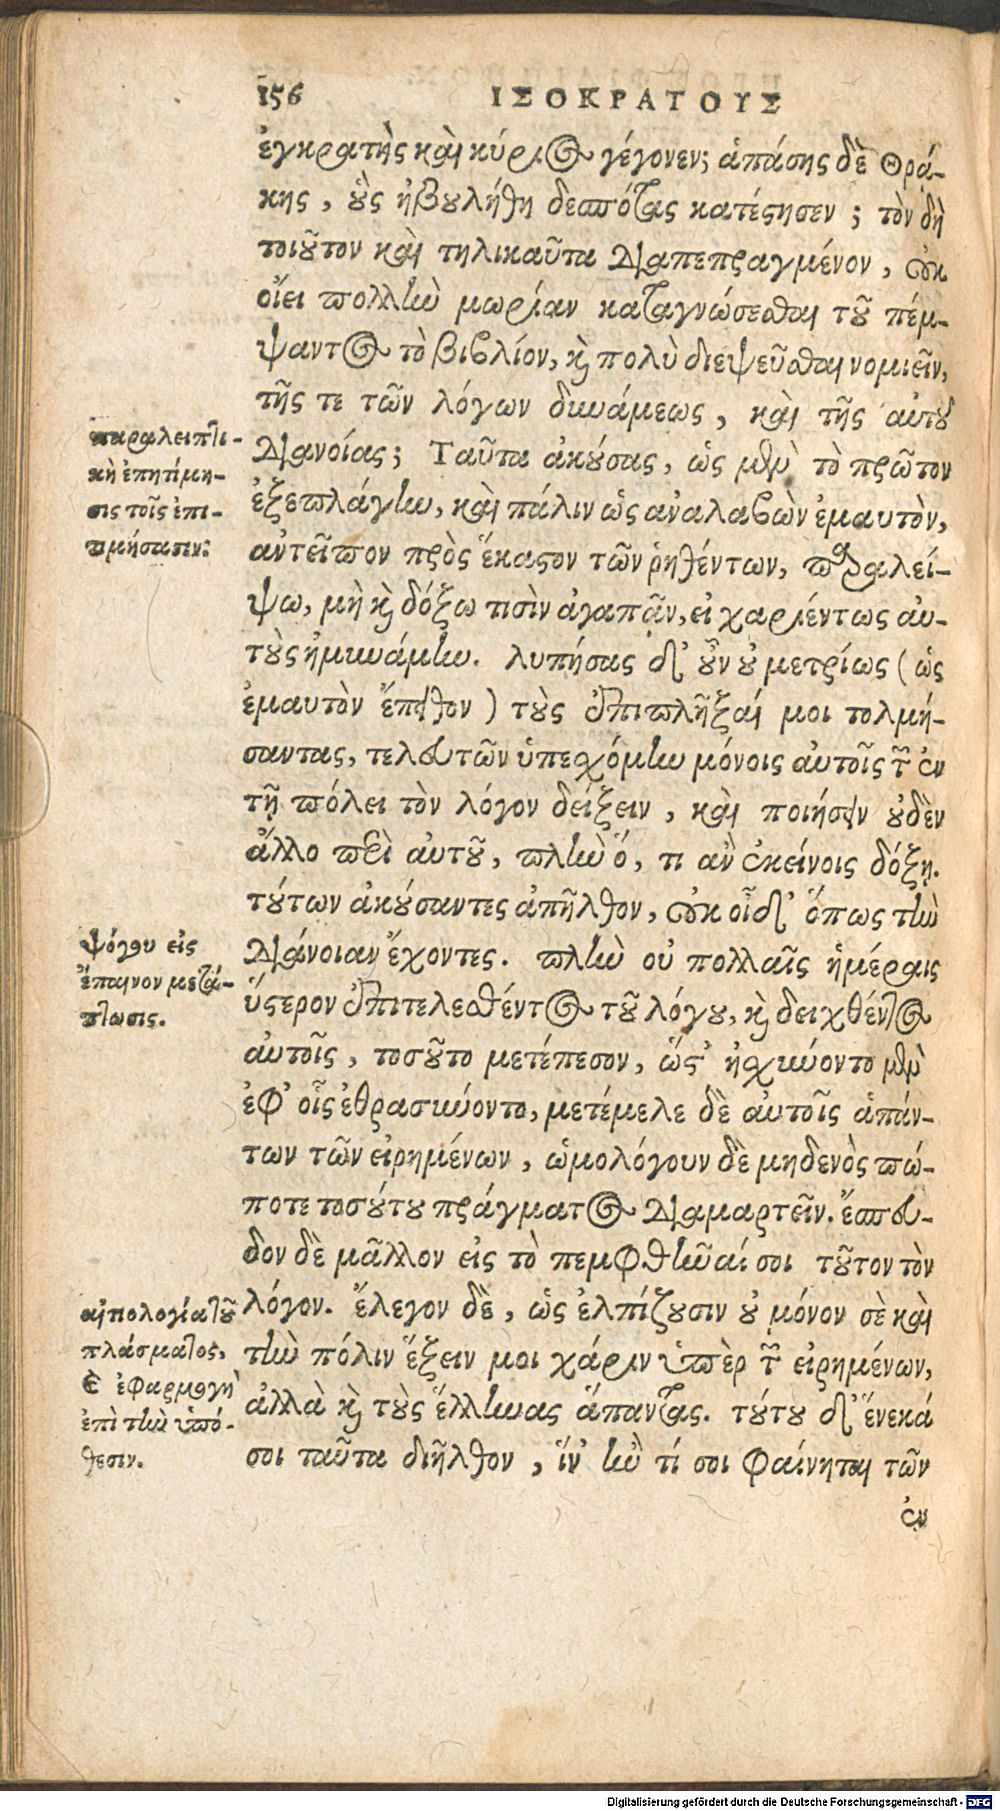 156 ΙΣΟΚΡΑΤΟΥΣ
ἐγκρατὴς καὶ κύριος γέγονεν; ἁπάσης δὲ Θρά-
κης, οὓς ἠβουλήθη δεσπότας κατέστησεν; τὸν δὴ
τοιοῦτον καὶ τηλικαῦτα διαπεπραγμένον, οὐκ
οἴει πολλὴν μωρίαν καταγνώσεσθαι τοῦ πέμ-
ψαντος τὸ βιβλίον, καὶ πολὺ διεψεῦσθαι νομιεῖν,
τῆς τε τῶν λόγων δυνάμεως, καὶ τῆς αὑτοῦ
διανοίας; Ταῦτα ἀκούσας, ὡς μὲν τὸ πρῶτον
ἐξεπλάγην, καὶ πάλιν ὡς ἀναλαβὼν ἐμαυτὸν,
ἀντεῖπον πρὸς ἕκαστον τῶν ῥηθέντων, παραλεί-
ψω, μὴ καὶ δόξω τισὶν ἀγαπᾷν, εἰ χαριέντως αὐ-
τοὺς ἠμυνάμην. λυπήσας δ' οὖν οὐ μετρίως (ὡς
ἐμαυτὸν ἔπειθον) τοὺς ἐπιπλῆξαί μοι τολμή-
σαντας, τελευτῶν ὑπεσχόμην μόνοις αὐτοῖς τῶν ἐν
τῇ πόλει τὸν λόγον δείξειν, καὶ ποιήσειν οὐδὲν
ἄλλο περὶ αὐτοῦ, πλὴν ὅ, τι ἂν ἐκείνοις δόξῃ.
τούτων ἀκούσαντες ἀπῆλθον, οὐκ οἶδ' ὅπως τὴν
διάνοιαν ἔχοντες. πλὴν οὐ πολλαῖς ἡμέραις
ὕστερον ἐπιτελεσθέντος τοῦ λόγου, καὶ δειχθέντος
αὐτοῖς, τοσοῦτο μετέπεσον, ὥστ' ᾐσχύνοντο μὲν
ἐφ' οἷς ἐθρασύνοντο, μετέμελε δὲ αὐτοῖς ἁπάν-
των τῶν εἰρημένων, ὡμολόγουν δὲ μηδενὸς πώ-
ποτε τοσούτου πράγματος διαμαρτεῖν. ἔσπευ-
δον δὲ μᾶλλον εἰς τὸ πεμφθῆναί σοι τοῦτον τὸν
λόγον. ἔλεγον δὲ, ὡς ἐλπίζουσιν οὐ μόνον σὲ καὶ
τὴν πόλιν ἕξειν μοι χάριν ὑπὲρ τῶν εἰρημένων,
ἀλλὰ καὶ τοὺς ἕλληνας ἅπαντας. τούτου δ' ἕνεκά
σοι ταῦτα διῆλθον, ἵν' ἤν τί σοι φαίνηται τῶν
ἐν
παραλειπτι-
κὴ ἐπητίμη-
σις τοῖς ἐπι-
τιμήσασιν:
ψόγου εἰς
ἔπαινον μετά-
πτωσις.
ἀπολογία τοῦ
πλάσματος,
καὶ ἐφαρμογὴ
ἐπὶ τὴν ὑπό-
θεσιν.
Digitalisierung gefördert durch die Deutsche Forschungsgemeinschaft - DFG